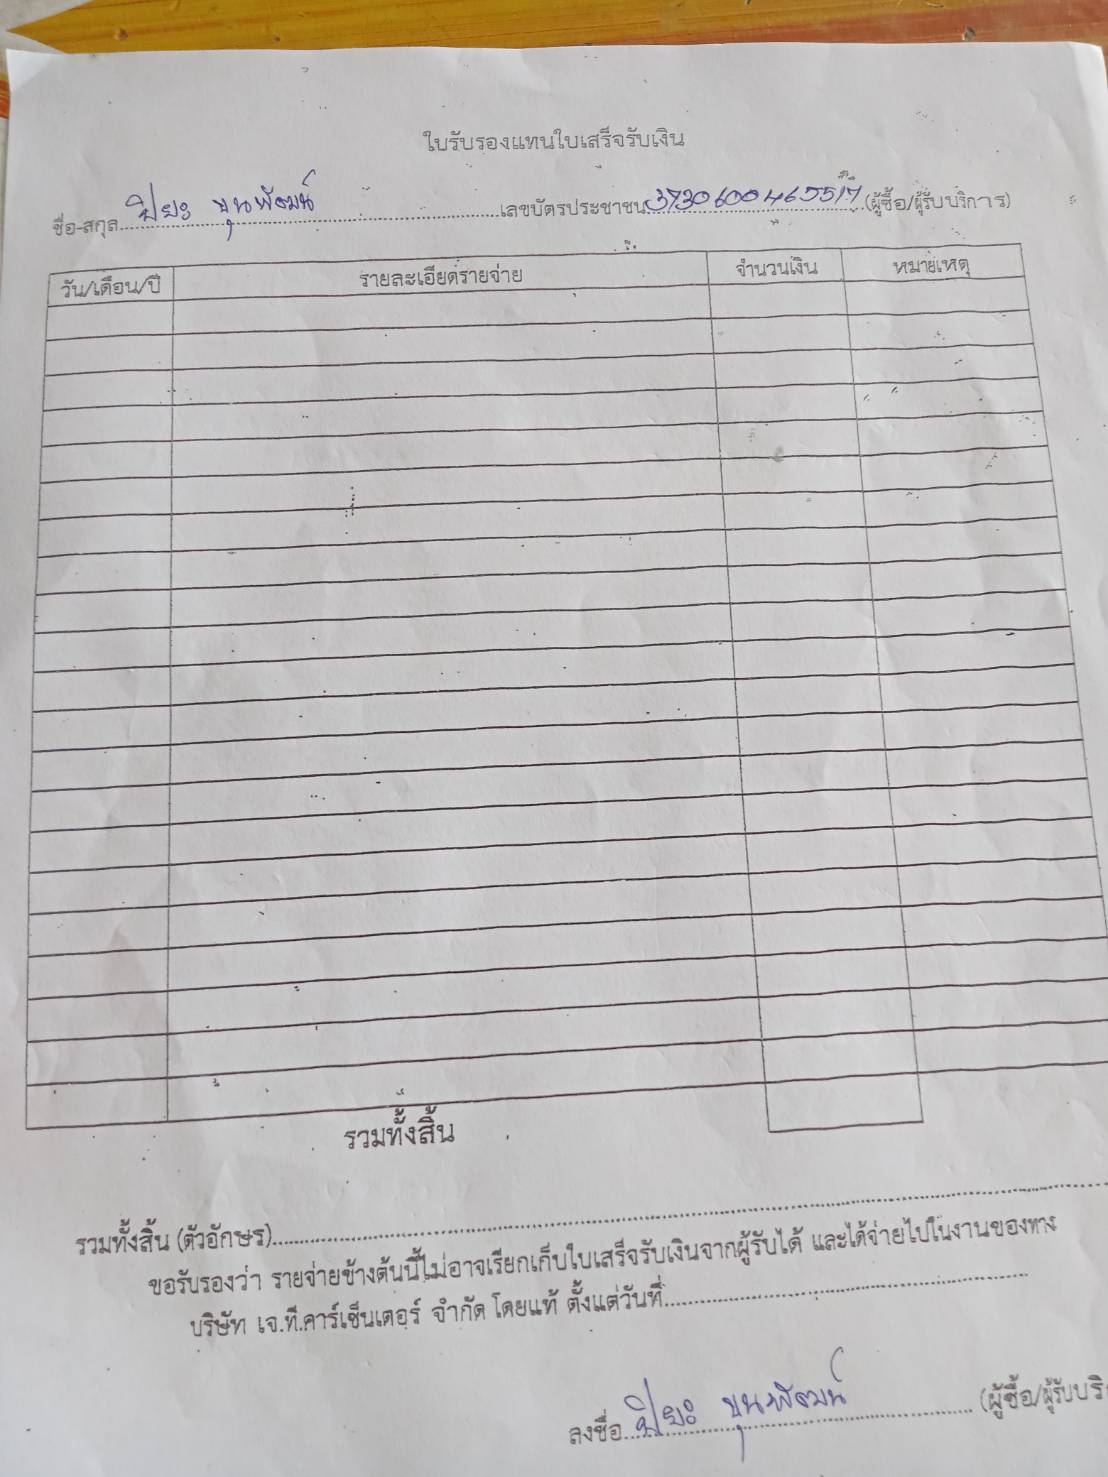 ใบรับรองแทนใบเสร็จรับเงิน
ชื่อ-สกุล ปิยะ ขุนพัฒน์ เลขบัตรประชาชน 3730600465517 (ผู้ซื้อ/ผู้รับบริการ)
วัน/เดือน/ปี รายละเอียดรายจ่าย จำนวนเงิน หมายเหตุ
รวมทั้งสิ้น
รวมทั้งสิ้น (ตัวอักษร)
ขอรับรองว่า รายจ่ายข้างต้นนี้ไม่อาจเรียกเก็บใบเสร็จรับเงินจากผู้รับได้ และได้จ่ายไปในงานของทาง
บริษัท เจ.ที.คาร์เซ็นเตอร์ จำกัด โดยแท้ ตั้งแต่วันที่
ลงชื่อ ปิยะ ขุนพัฒน์ (ผู้ซื้อ/ผู้รับบริ